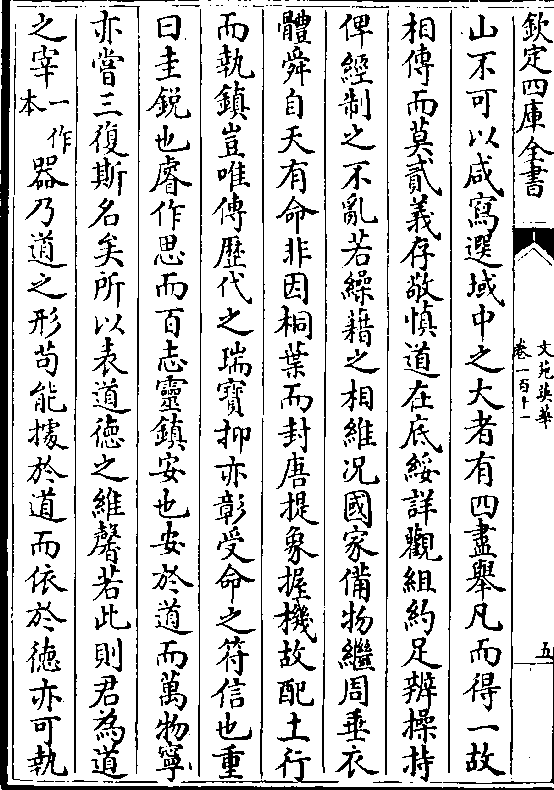 欽定四庫全書
文苑英華
卷一百十一
五
山不可以咸寫選域中之大者有四盡舉凡而得一故
相傳而莫貳義存敬慎道在底綏詳觀組約足辨操持
俾經制之不亂若繰藉之相維况國家備物繼周垂衣
體舜自天有命非因桐葉而封唐提象握機故配土行
而執鎮豈唯傳歷代之瑞寳抑亦彰受命之符信也重
曰圭鋭也睿作思而百志靈鎮安也安於道而萬物寧
亦嘗三復斯名矣所以表道徳之維馨若此則君為道
之宰一作本器乃道之形苟能據於道而依於徳亦可執